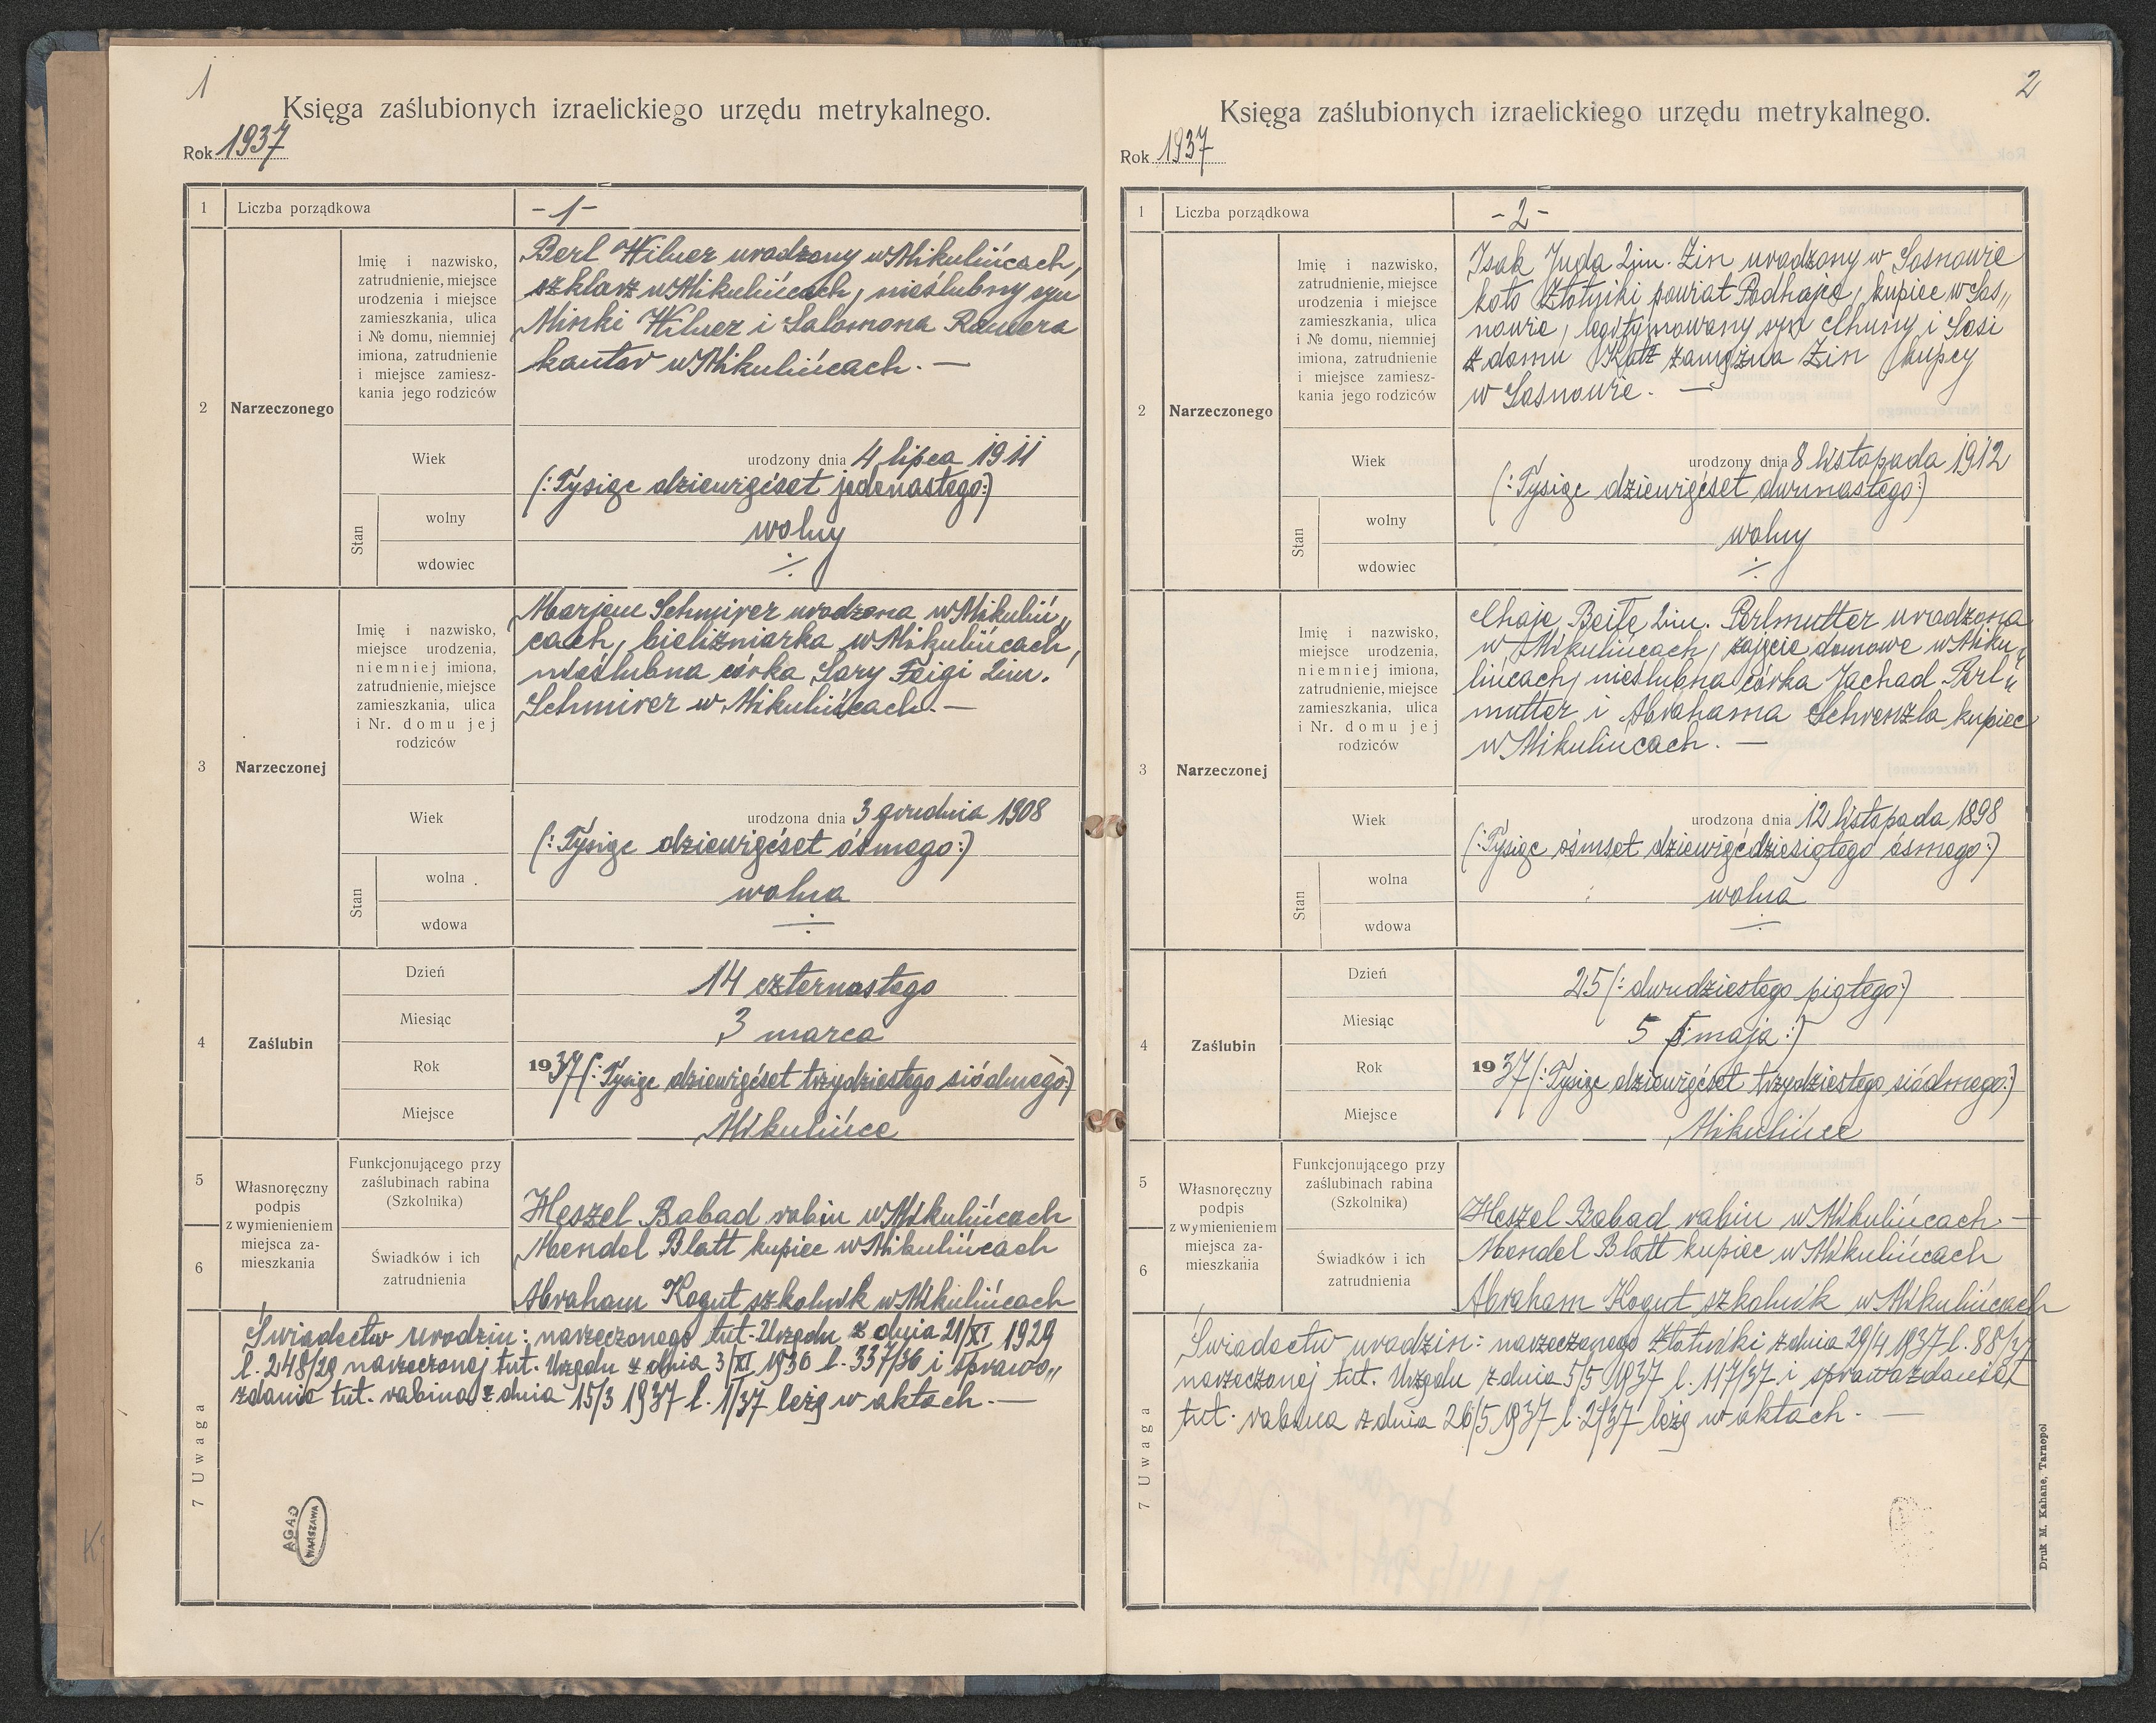 1
Księga zaślubionych izraelickiego urzędu metrykalnego.
Rok 1937
1 Liczba porządkowa -1-
2 Narzeczonego
Imię i nazwisko,
zatrudnienie, miejsce
urodzenia i miejsce
zamieszkania, ulica
i № domu, niemniej
imiona, zatrudnienie
i miejsce zamiesz-
kania jego rodziców
Berl Wilner urodzony w Mikulińcach,
szklarz w Mikulińcach, nieślubny syn
Minki Wilner i Salomona Ramera
kantor w Mikulińcach. —
Wiek urodzony dnia 4 lipca 1911
(: Tysiąc dziewięćset jedenastego:)
Stan
wolny wolny
wdowiec ÷
3 Narzeczonej
Imię i nazwisko,
miejsce urodzenia,
niemniej imiona,
zatrudnienie, miejsce
zamieszkania, ulica
i Nr. domu jej
rodziców
Marjem Schmirer urodzona w Mikuliń„
cach, bieliźniarka w Mikulińcach,
nieślubna córka Sary Feigi 2im.
Schmirer w Mikulińcach. —
Wiek urodzona dnia 3 grudnia 1908
(: Tysiąc dziewięćset ósmego:)
Stan
wolna wolna
wdowa ÷
4 Zaślubin
Dzień 14 czternastego
Miesiąc 3 marca
Rok 1937 (: Tysiąc dziewięćset trzydziestego siódmego:)
Miejsce Mikulińce
5
6
Własnoręczny
podpis
z wymienieniem
miejsca za-
mieszkania
Funkcjonującego przy
zaślubinach rabina
(Szkolnika)
Heszel Babad rabin w Mikulińcach
Świadków i ich
zatrudnienia
Mendel Blatt kupiec w Mikulińcach
Abraham Kogut szkolnik w Mikulińcach
7 Uwaga
Świadectw urodzin: narzeczonego tut. Urzędu z dnia 21/XI 1929
l. 248/29 narzeczonej tut. Urzędu z dnia 3/XI 1936 l. 337/36 i sprawo„
zdanie tut. rabina z dnia 15/3 1937 l. 1/37 leżą w aktach. —
AGAD
WARSZAWA
2
Księga zaślubionych izraelickiego urzędu metrykalnego.
Rok 1937
1 Liczba porządkowa -2-
2 Narzeczonego
Imię i nazwisko,
zatrudnienie, miejsce
urodzenia i miejsce
zamieszkania, ulica
i № domu, niemniej
imiona, zatrudnienie
i miejsce zamiesz-
kania jego rodziców
Isak Juda 2im. Zin urodzony w Sosnowie
koło Złotniki powiat Podhajce, kupiec w Sos„
nowie, legitymowany syn Chuny i Sosi
z domu Katz zamężna Zin kupcy
w Sosnowie. —
Wiek urodzony dnia 8 listopada 1912
(: Tysiąc dziewięćset dwunastego:)
Stan
wolny wolny
wdowiec ÷
3 Narzeczonej
Imię i nazwisko,
miejsce urodzenia,
niemniej imiona,
zatrudnienie, miejsce
zamieszkania, ulica
i Nr. domu jej
rodziców
Chaje Beile 2im. Perlmutter urodzona
w Mikulińcach, zajęcie domowe w Miku„
lińcach, nieślubna córka Jachad Perl„
mutter i Abrahama Schrenzla kupiec
w Mikulińcach. —
Wiek urodzona dnia 12 listopada 1898
(: Tysiąc ośmset dziewięćdziesiątego ósmego:)
Stan
wolna wolna
wdowa ÷
4 Zaślubin
Dzień 25 (: dwudziestego piątego:)
Miesiąc 5 (: maja :)
Rok 1937 (: Tysiąc dziewięćset trzydziestego siódmego:)
Miejsce Mikulińce
5
6
Własnoręczny
podpis
z wymienieniem
miejsca za-
mieszkania
Funkcjonującego przy
zaślubinach rabina
(Szkolnika)
Heszel Babad rabin w Mikulińcach. —
Świadków i ich
zatrudnienia
Mendel Blatt kupiec w Mikulińcach
Abraham Kogut szkolnik w Mikulińcach
7 Uwaga
Świadectw urodzin: narzeczonego Złotniki z dnia 29/4 1937 l. 88/37
narzeczonej tut. Urzędu z dnia 5/5 1937 l. 117/37 i sprawozdanie
tut. rabina z dnia 26/5 1937 l. 2/37 leżą w aktach. —
Druk M. Kahane, Tarnopol